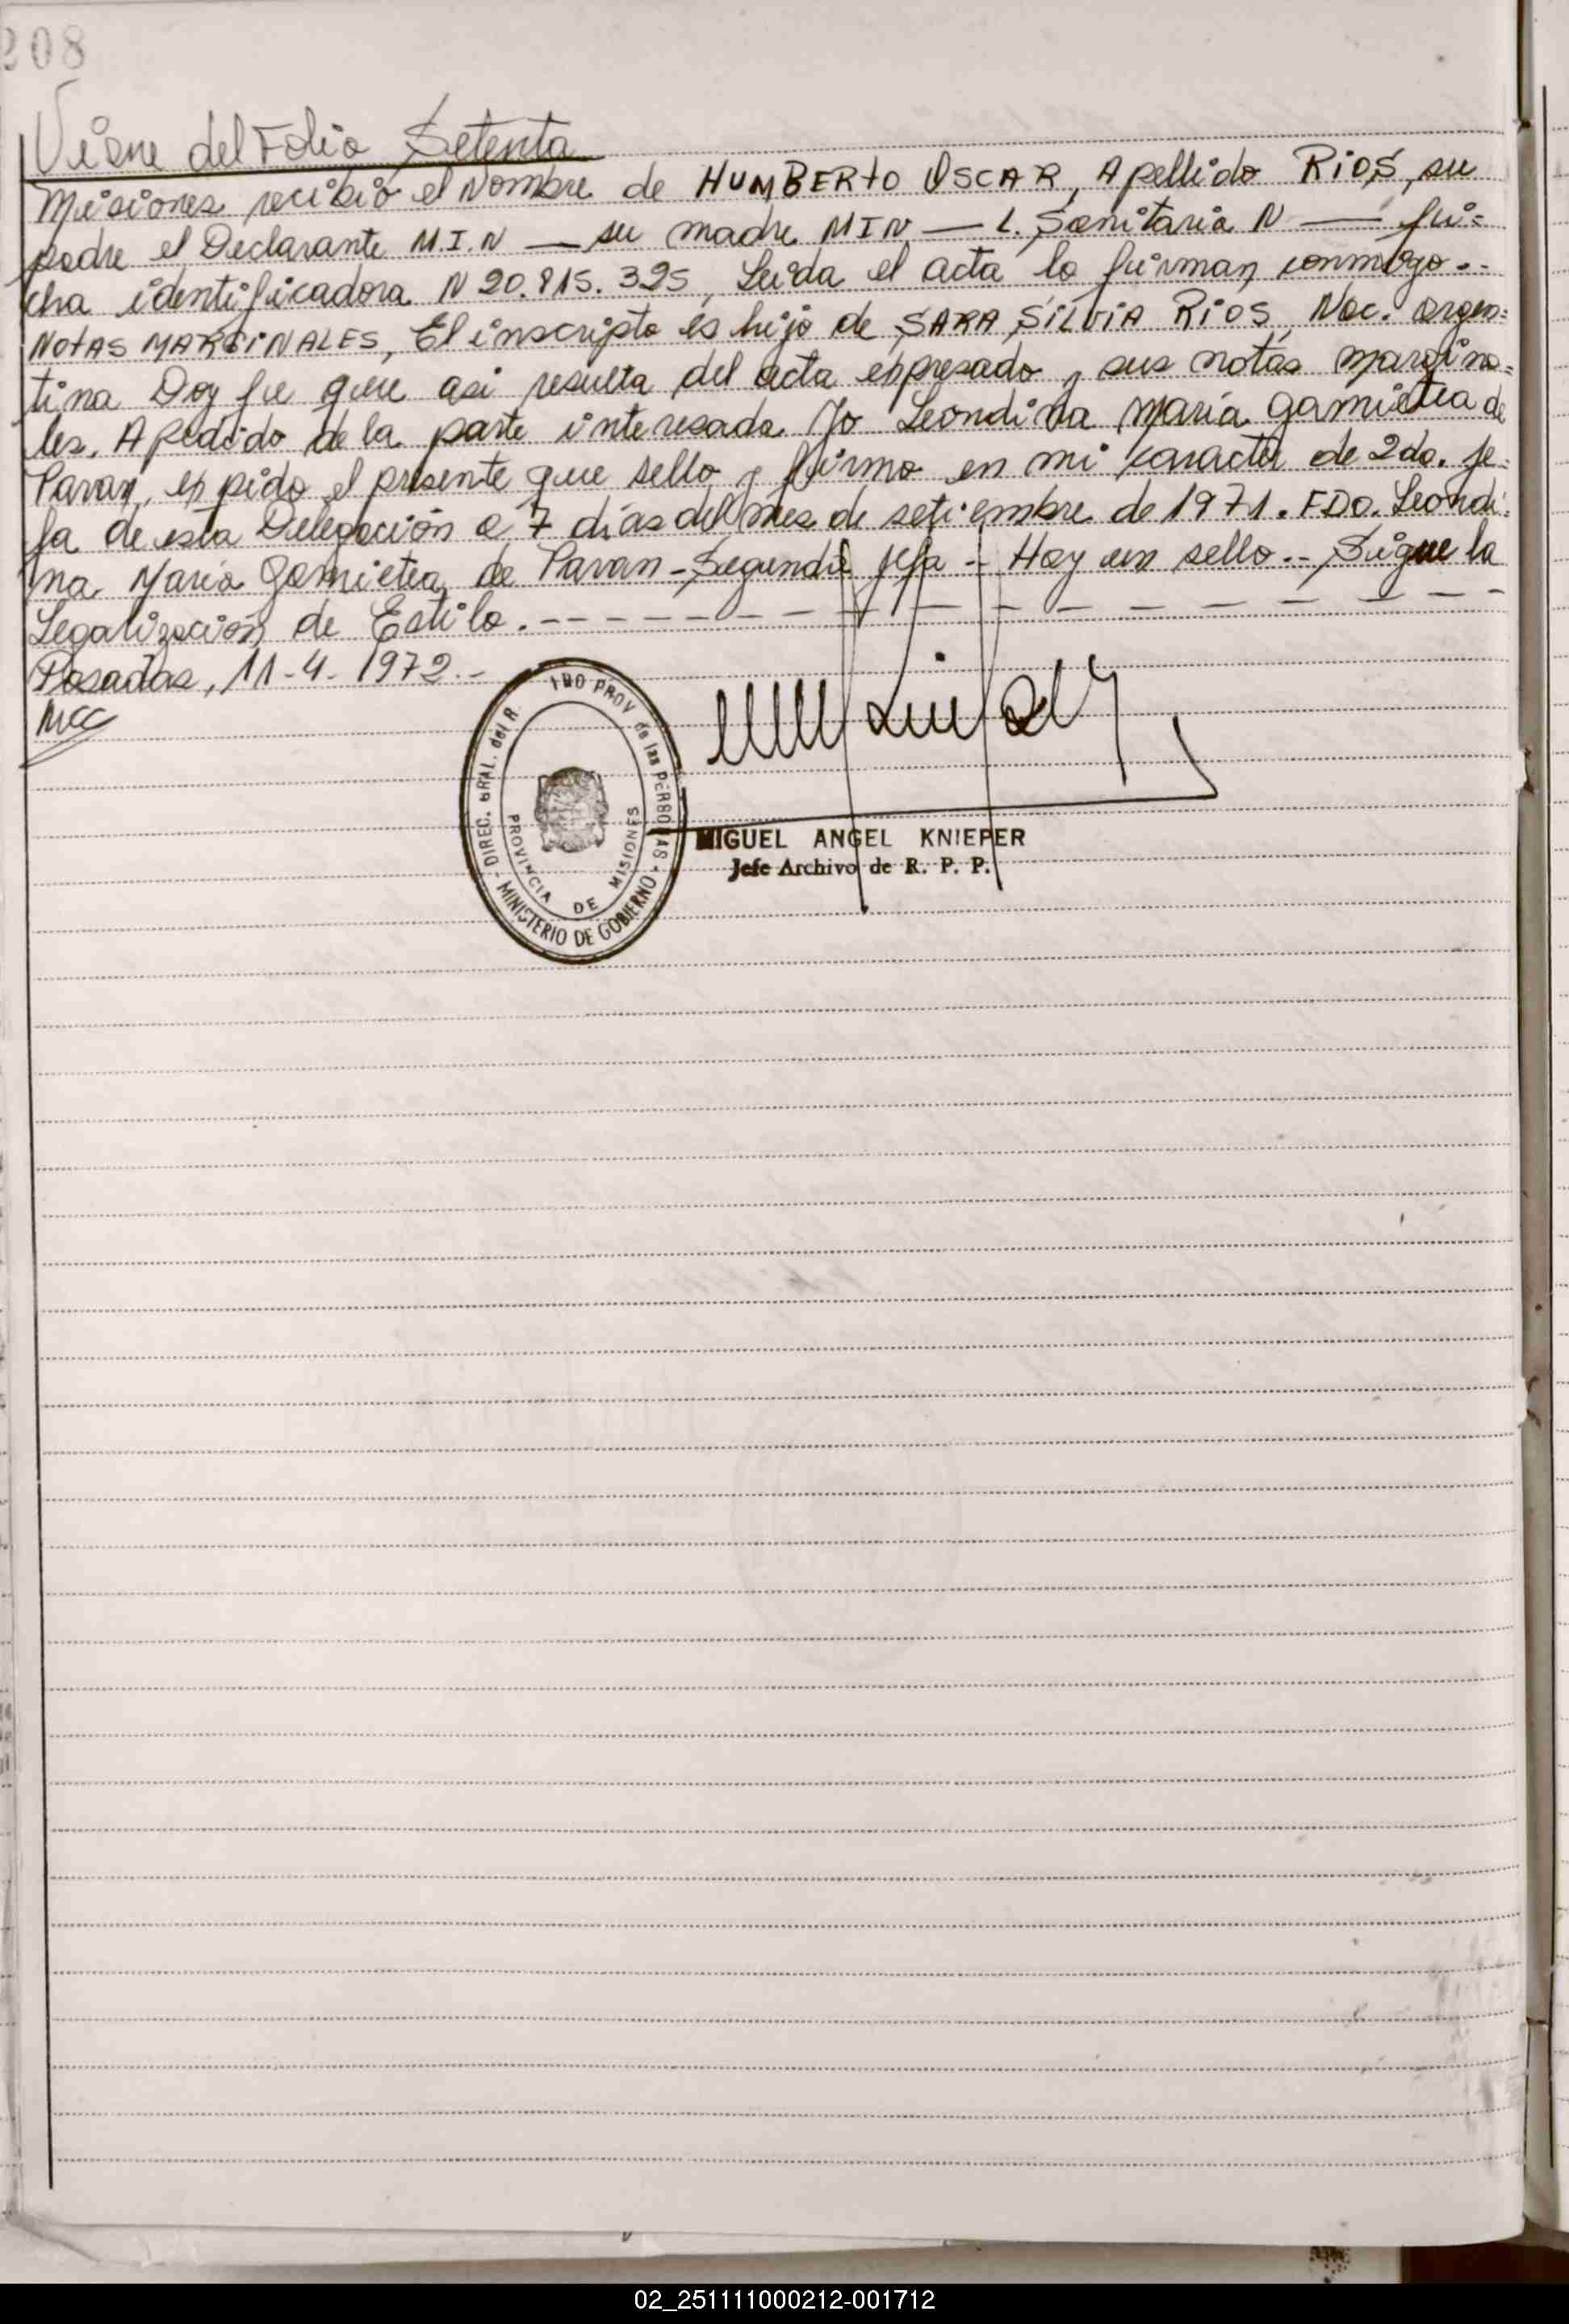 208
Viene del Folio Setenta
Misiones recibió el Nombre de HUMBERTO OSCAR, Apellido RIOS, su
padre el Declarante M.I.N — su madre MIN — L. Sanitaria N — fi=
cha identificadora N 20.815.325, Leida el acta la firman conmigo.-
NOTAS MARGINALES, El inscripto es hijo de SARA SILVIA RIOS, Nac. argen=
tina Doy fe que asi resulta del acta expresado y sus notas margina=
les. A pedido de la parte interesada Yo Leondina María Gamietea de
Pavan, expido el presente que sello y firmo en mi caracter de 2da. Je=
fa de esta Delegación a 7 días del mes de setiembre de 1971. FDO. Leondi=
na María Gamietea de Pavan - Segunda Jefa - Hay un sello.- Sigue la
Legalización de Estilo. - - - - - - - - - - - - - - - -
Posadas, 11-4-1972.-
MCC
DIREC. GRAL. del R. PROV. de las PERSONAS
PROVINCIA DE MISIONES
MINISTERIO DE GOBIERNO
MIGUEL ANGEL KNIEPER
Jefe Archivo de R. P. P.
02_251111000212-001712